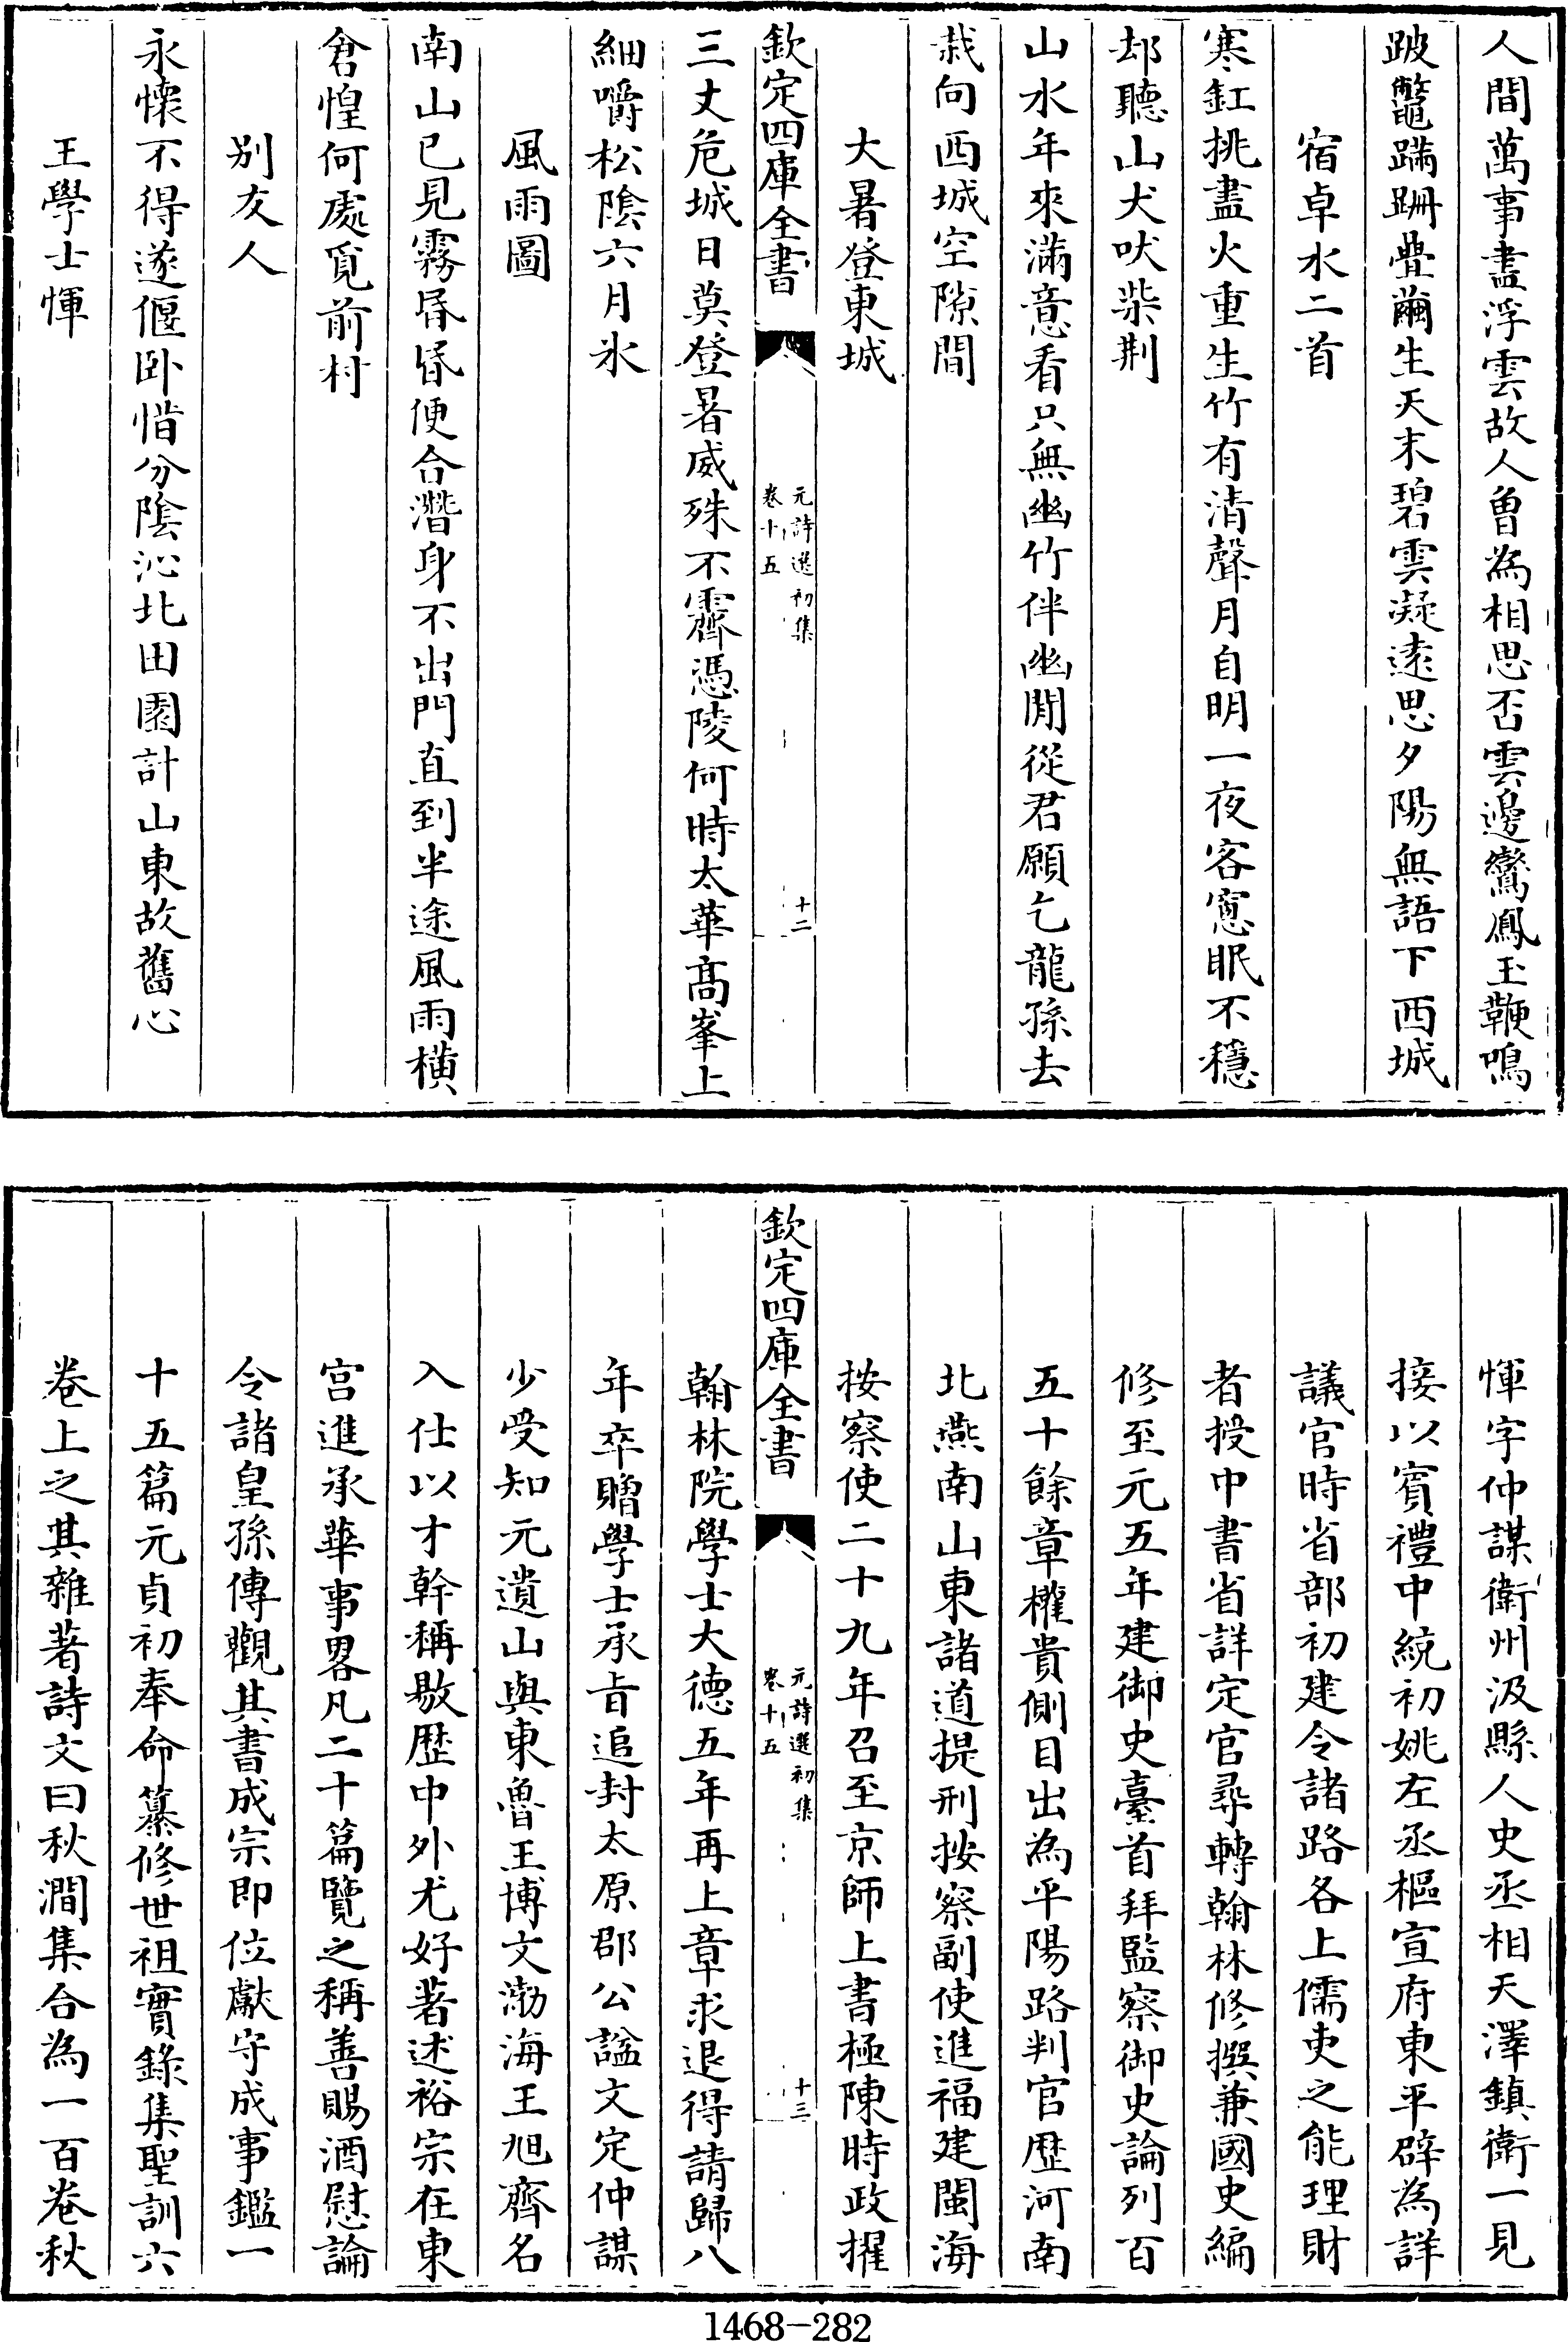 人間萬事盡浮雲故人曾為相思否雲邊鸞鳳玉鞭鳴
跛鼈蹣跚疊繭生天末碧雲凝遠思夕陽無語下西城
宿卓水二首
寒釭挑盡火重生竹有清聲月自明一夜客窻眠不穩
却聽山犬吠柴荆
山水年來滿意看只無幽竹伴幽閒從君願乞龍孫去
栽向西城空隙間
大暑登東城
欽定四庫全書
元詩選初集
卷十五
十二
三丈危城日莫登暑威殊不霽憑陵何時太華髙峯上
細嚼松隂六月氷
風雨圖
南山已見霧昏昏便合潛身不出門直到半途風雨横
倉惶何處覓前村
别友人
永懷不得遂偃卧惜分隂沁北田園計山東故舊心
王學士惲
惲字仲謀衛州汲縣人史丞相天澤鎮衛一見
接以賓禮中統初姚左丞樞宣府東平辟為詳
議官時省部初建令諸路各上儒吏之能理財
者授中書省詳定官尋轉翰林修撰兼國史編
修至元五年建御史臺首拜監察御史論列百
五十餘章權貴側目出為平陽路判官歴河南
北燕南山東諸道提刑按察副使進福建閩海
按察使二十九年召至京師上書極陳時政擢
欽定四庫全書
元詩選初集
卷十五
十三
翰林院學士大德五年再上章求退得請歸八
年卒贈學士承旨追封太原郡公諡文定仲謀
少受知元遺山與東魯王博文渤海王旭齊名
入仕以才幹稱敭歴中外尤好著述裕宗在東
宫進承華事畧凡二十篇覽之稱善賜酒慰諭
令諸皇孫傳觀其書成宗即位獻守成事鑑一
十五篇元貞初奉命纂修世祖實錄集聖訓六
卷上之其雜著詩文曰秋澗集合為一百卷秋
1468-282